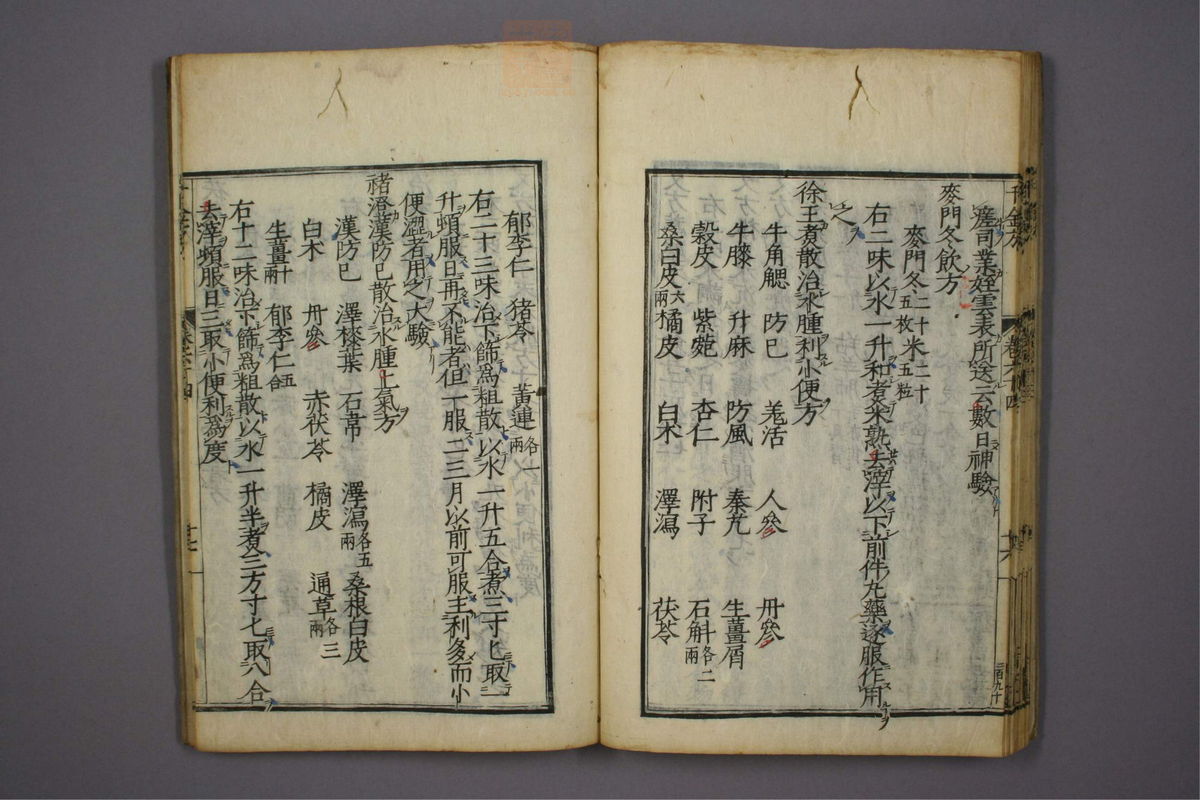 瘥司業姪雲表所送云數日神驗
麥門冬飲方
麥門冬二十五枚米二十五粒
右二味以水一升和煮米熟去滓以下前件丸藥逐服作用
之
徐王煮散治水腫利小便方
牛角䚡 防已 羌活 人參 丹參
牛膝 升麻 防風 秦艽 生薑屑
穀皮 紫菀 杏仁 附子 石斛各二兩
桑白皮六兩 橘皮 白朮 澤瀉 茯苓
郁李仁 猪苓 黃連各一兩
右二十三味治下篩爲粗散以水一升五合煮三寸匕取一
升頓服日再不能者但一服二三月以前可服主利多而小
便澀者用之大驗
褚澄漢防已散治水腫上氣方
漢防已 澤漆葉 石韋 澤瀉各五兩 桑根白皮
白朮 丹參 赤茯苓 橘皮 通草各三兩
生薑十兩 郁李仁五合
右十二味治下篩爲粗散以水一升半煮三方寸匕取八合
去滓頓服日三取小便利爲度
三百九十